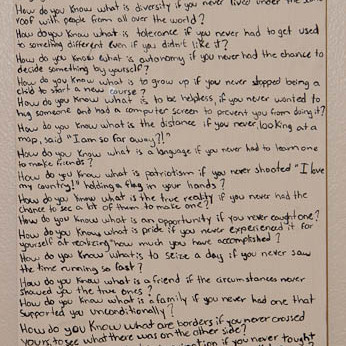 How do you know what is diversity if you never lived under the same
roof with people from all over the world?
How do you know what is tolerance if you never had to get used
to something different even if you didn't like it?
How do you know what is autonomy if you never had the chance to
decide something by yourself?
How do you know what is to grow up if you never stopped being a
child to start a new course?
How do you know what is to be helpless, if you never wanted to
hug someone and had a computer screen to prevent you from doing it?
How do you know what is the distance if you never, looking at a
map, said "I am so far away?!"
How do you know what is a language if you never had to learn one
to make friends?
How do you know what is patriotism if you never shooted "I love
my country!" holding a flag in your hands?
How do you know what is the true reality if you never had the
chance to see a lot of them to make one?
How do you know what is an opportunity if you never caught one?
How do you know what is pride if you never experienced it for
yourself at realizing how much you have accomplished?
How do you know what is to seize a day if you never saw
the time running so fast?
How do you know what is a friend if the circumstances never
showed you the true ones?
How do you know what is a family if you never had one that
supported you unconditionally?
How do you know what are borders if you never crossed
yours, to see what there was on the other side?
if you never tought